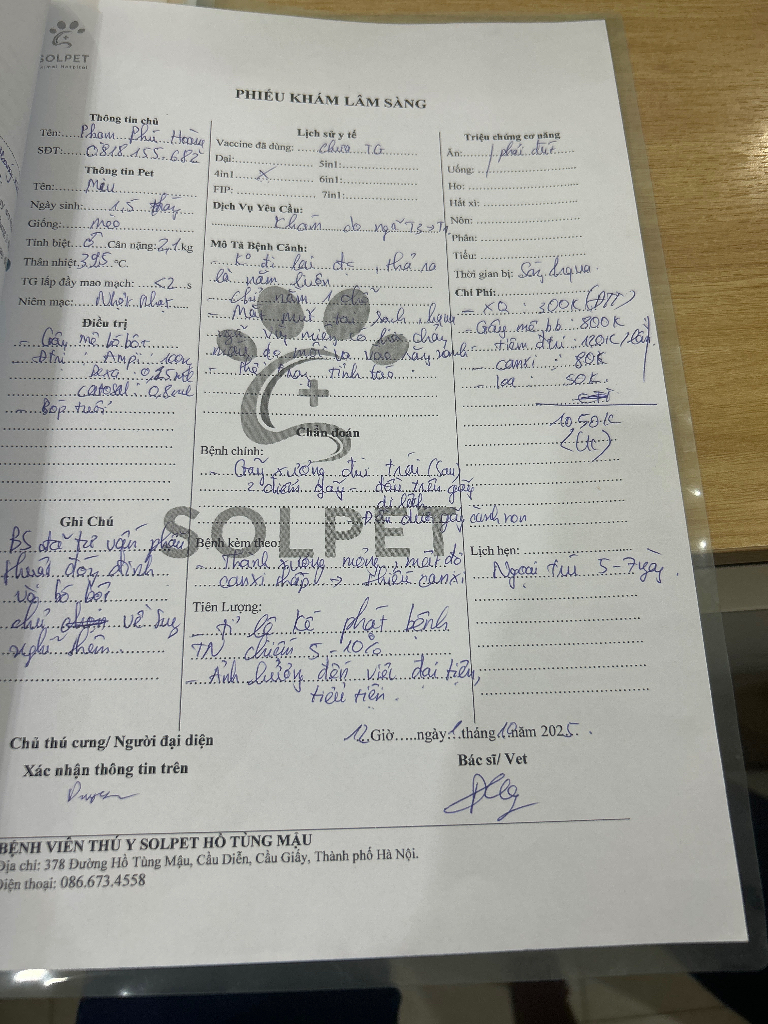 SOLPET
PHIẾU KHÁM LÂM SÀNG
Thông tin chủ
Tên: Phạm Phú Hoàng
SĐT: 0818.155.682
Thông tin Pet
Tên: Mèo
Ngày sinh: 1,5 tháng
Giống: mèo
Tính biệt Cân nặng: 2,1 kg
Thân nhiệt 39,5 °C.
TG lấp đầy mao mạch: <2 s
Niêm mạc: Nhợt nhạt
Điều trị
- Gây mê bó bột
- Đtrị: Ampi:
Dexa:
catosal: 0,8ml
- Bóp
Ghi Chú
BS đã tư vấn phẫu
thuật đóng đinh
và bó bột
chủ về suy
nghĩ thêm
Lịch sử y tế
Vaccine đã dùng: chưa TG
Dại: 5in1:
4in1 X 6in1:
FIP: 7in1:
Dịch Vụ Yêu Cầu:
Khám do ngã
Mô Tả Bệnh Cảnh:
- K° đi lại đc, thả ra
là nằm luôn
- Chỉ nằm 1 chỗ
- tỉnh táo
Chẩn đoán
Bệnh chính:
- Gãy xương đùi trái (Sau)
2 điểm gãy - đầu trên gãy
di lệch
Đầu dưới gãy cành non
SOLPET
Bệnh kèm theo:
- Thành xương mỏng, mật độ
canxi thấp → thiếu canxi
Tiên Lượng:
- Tỉ lệ kế phát bệnh
TN chiếm 5-10%
- Ảnh hưởng đến việc đại tiện,
tiểu tiện.
Triệu chứng cơ năng
Ăn: phải đút
Uống:
Ho:
Hắt xì:
Nôn:
Phân:
Tiểu:
Thời gian bị: Sáng nay
Chi Phí:
- XQ: 300K (ĐTT)
- Gây mê bb: 800K
- tiêm đtrị: 120K/lần
- canxi: 80K
- loa: 50K
10.50.K
(tc)
Lịch hẹn:
Ngoại trú 5-7 ngày.
12 Giờ.....ngày 1 tháng 10 năm 2025.
Chủ thú cưng/ Người đại diện
Xác nhận thông tin trên
Bác sĩ/ Vet
BỆNH VIỆN THÚ Y SOLPET HỒ TÙNG MẬU
Địa chỉ: 378 Đường Hồ Tùng Mậu, Cầu Diễn, Cầu Giấy, Thành phố Hà Nội.
Điện thoại: 086.673.4558